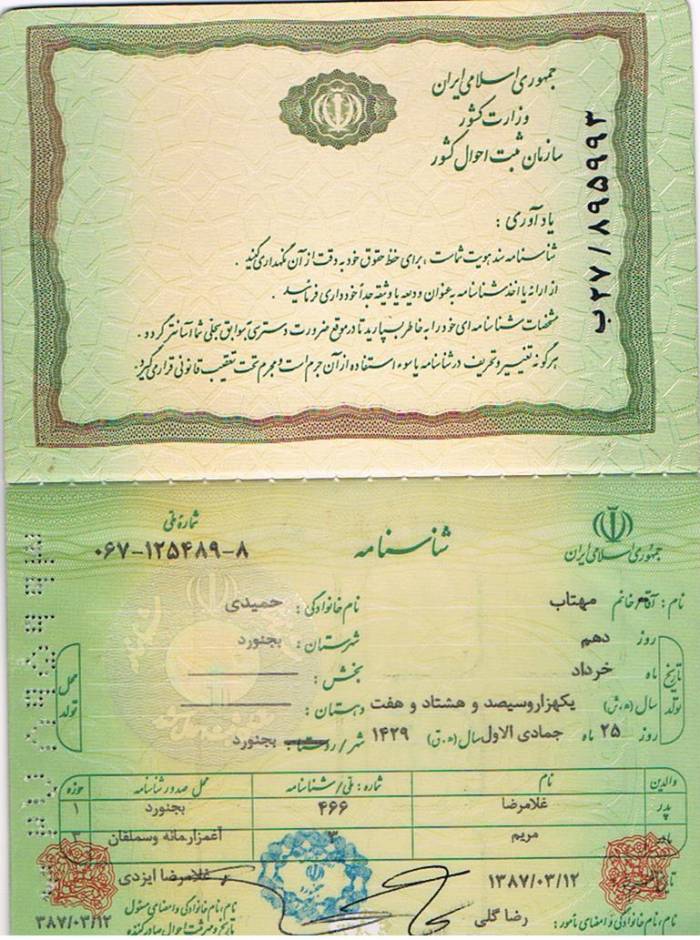 جمهوری اسلامی ایران
وزارت کشور
سازمان ثبت احوال کشور
ب۲۷/۸۹۵۹۹۳
یادآوری :
شناسنامه سند هویت شماست ، برای حفظ حقوق خود به دقت از آن نگهداری کنید .
از ارائه یا اخذ شناسنامه به عنوان ودیعه یا وثیقه جداً خودداری فرمائید .
مشخصات شناسنامه ای خود را به خاطر بسپارید تا در موقع ضرورت دسترسی به سوابق سجلی شما آسانتر گردد .
هرگونه تغییر و تحریف در شناسنامه یا سوء استفاده از آن جرم است و مجرم تحت تعقیب قانونی قرار می گیرد .
جمهوری اسلامی ایران
شناسنامه
شماره ملی
۰۶۷-۱۲۵۴۸۹-۸
نام : آقا/خانم مهتاب نام خانوادگی : حمیدی
تاریخ تولد
روز دهم شهرستان : بجنورد
ماه خرداد بخش :
سال (ه.ش) یکهزاروسیصد و هشتاد و هفت دهستان :
روز ۲۵ ماه جمادی الاول سال (ه.ق) ۱۴۲۹ شهر/روستا : بجنورد
محل تولد
والدین نام شماره : ملی/شناسنامه محل صدور شناسنامه حوزه
پدر غلامرضا ۴۶۶ بجنورد ۱
مادر مریم ۳ آغمزارمانه وسملقان ۳
۱۳۸۷/۰۳/۱۲ غلامرضا ایزدی
نام، نام خانوادگی و امضای مأمور : رضا گلی نام، نام خانوادگی و امضای مسئول
۳۸۷/۰۳/۱۲